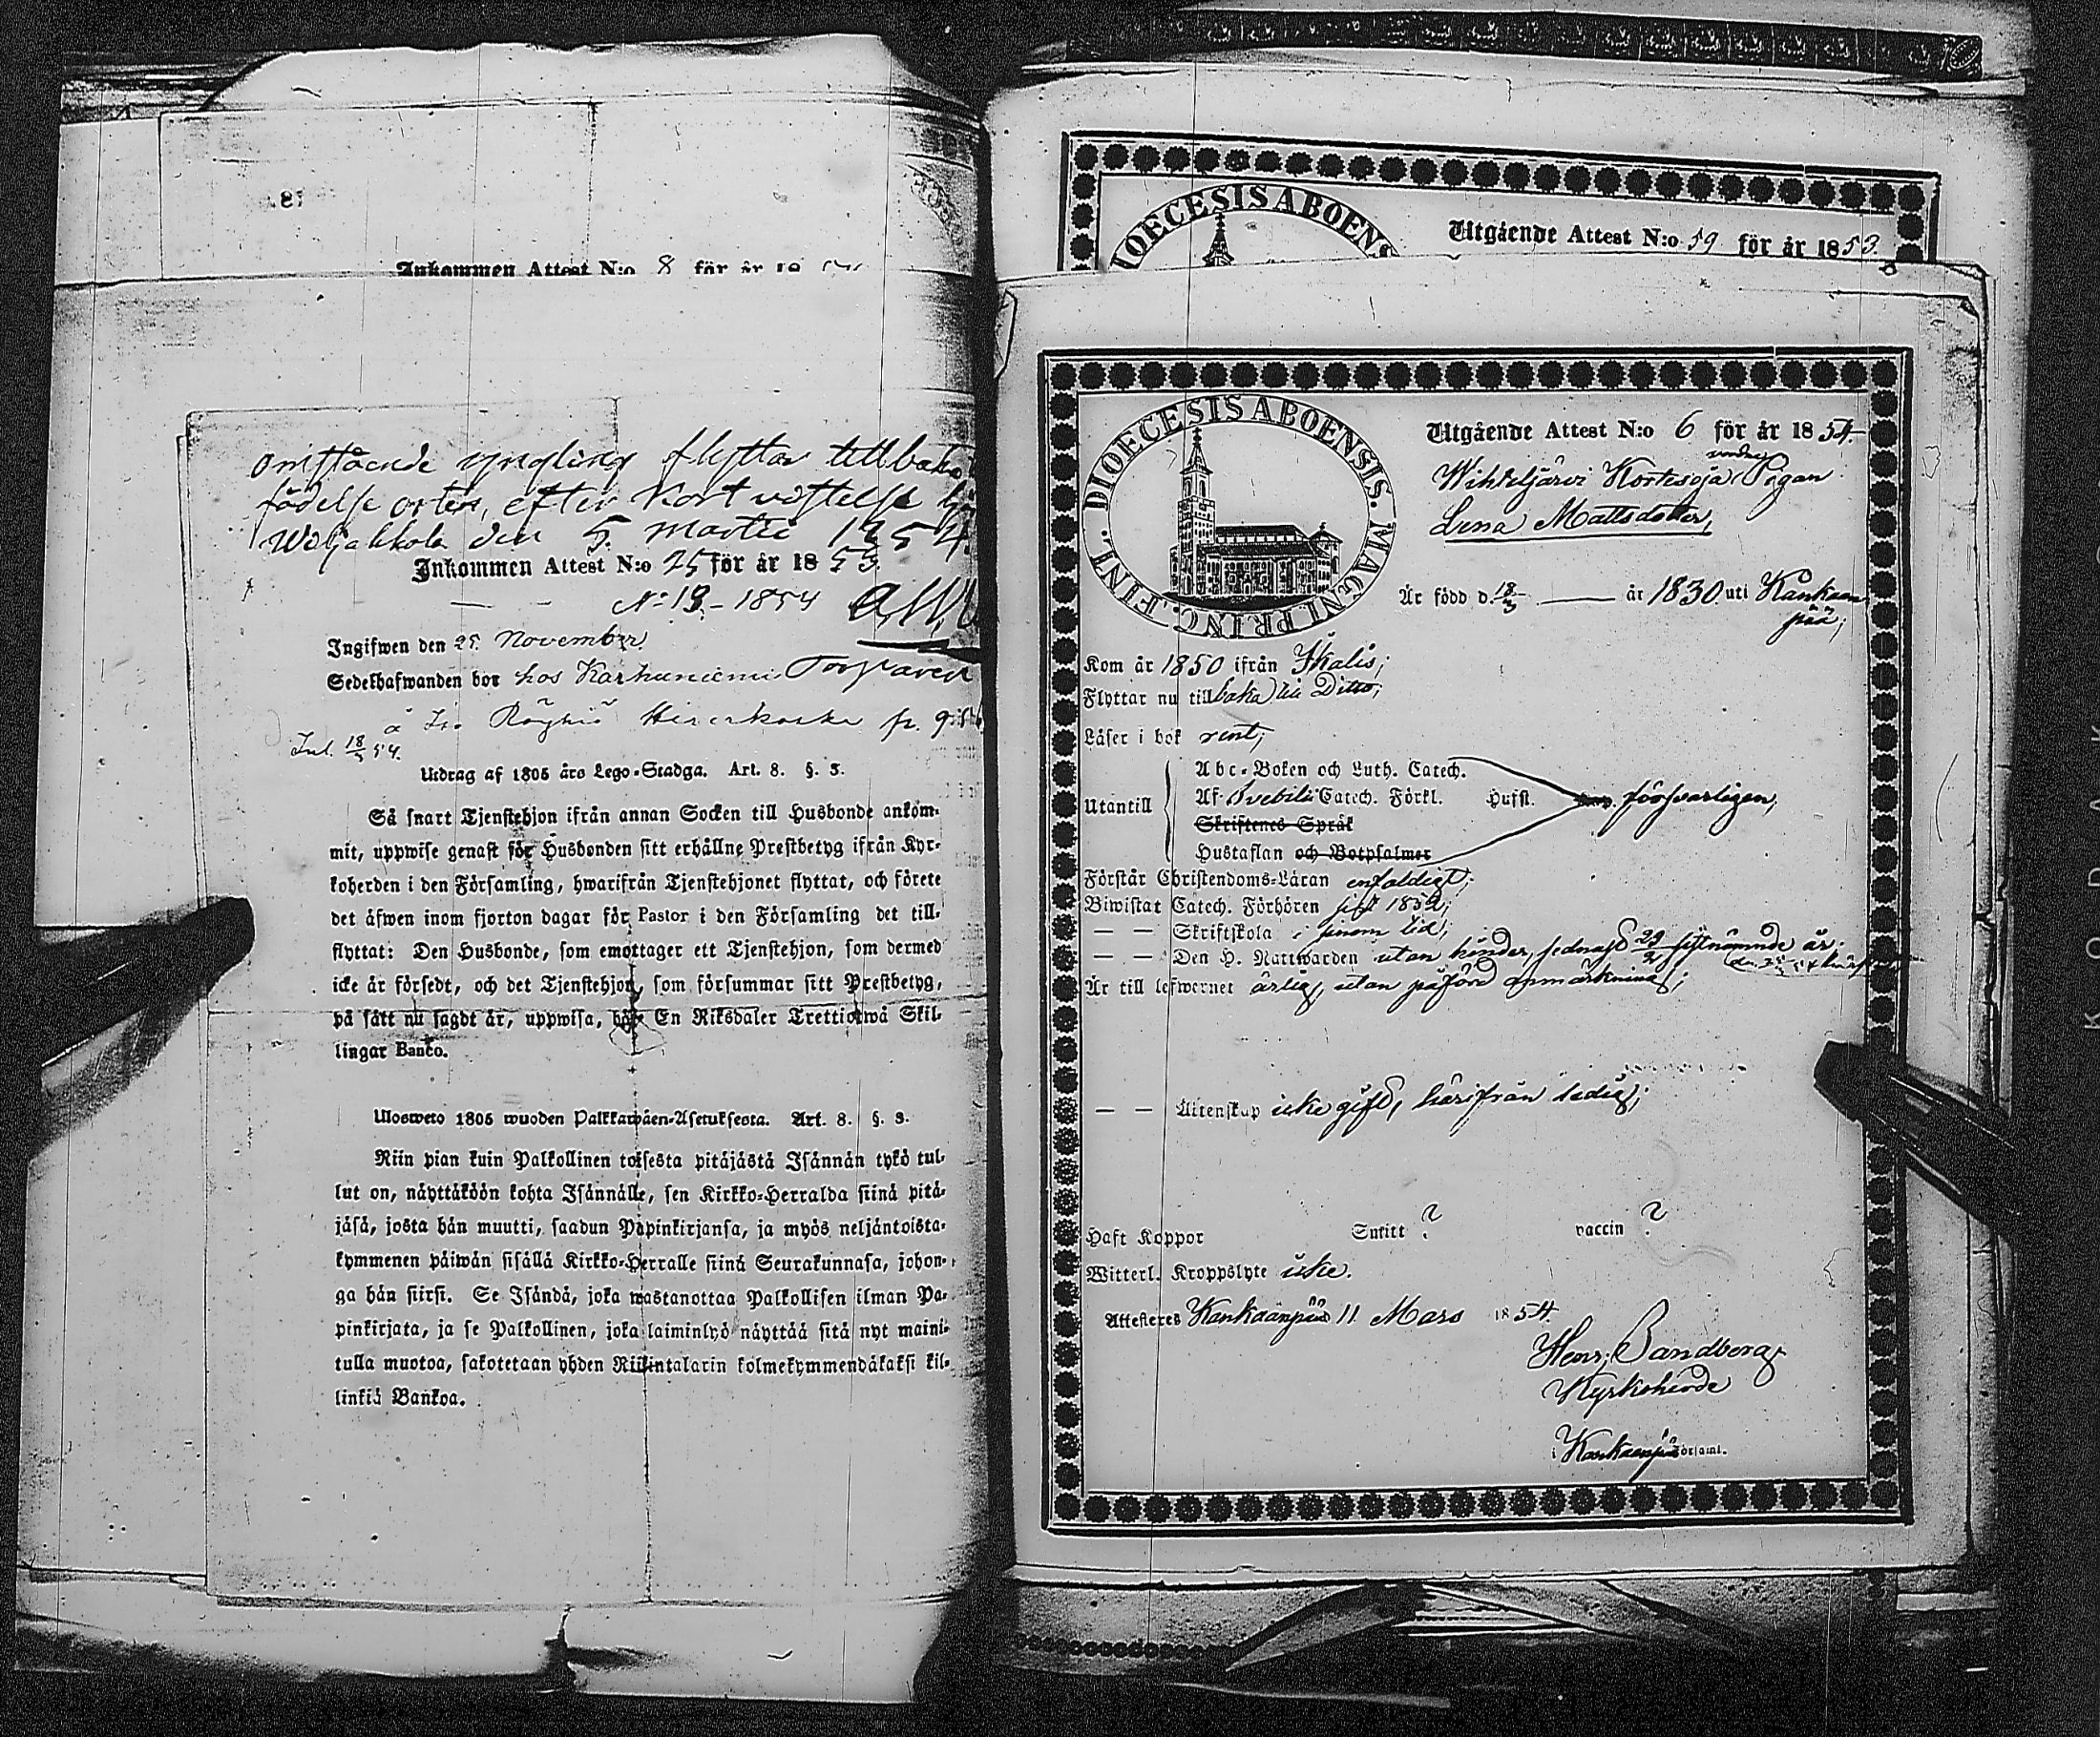 Inkommen Attest N:o 8 för år 18
omstående yngling flyttar tillbaka
födelse orten, efter kort vistelse
den 5 martii 1854.
Inkommen Attest N:o 25 för år 1853.
— - N:o 13 - 1854
Ingifwen den 25 November
Sedelhafwanden bor hos Karhuniemi
å
Inl. 18/3 54.
Utdrag af 1805 års Lego-Stadga. Art. 8. §. 3.
Så snart Tjenstehjon ifrån annan Socken till Husbonde ankom-
mit, uppwise genast för Husbonden sitt erhållne Prestbetyg ifrån Kyr-
koherden i den Församling, hwarifrån Tjenstehjonet flyttat, och förete
det äfwen inom fjorton dagar för Pastor i den Församling det till-
flyttat: Den Husbonde, som emottager ett Tjenstehjon, som dermed
icke är försedt, och det Tjenstehjon, som försummar sitt Prestbetyg,
på sätt nu sagdt är, uppwisa, böte En Riksdaler Trettiotwå Skil-
lingar Banco.
Ulosweto 1805 wuoden Palkkawäen-Asetuksesta. Art. 8. §. 3.
Niin pian kuin Palkollinen toisesta pitäjästä Isännän tykö tul-
lut on, näyttäköön kohta Isännälle, sen Kirkko-Herralda siinä pitä-
jäsä, josta hän muutti, saadun Papinkirjansa, ja myös neljäntoista-
kymmenen päiwän sisällä Kirkko-Herralle siinä Seurakunnasa, johon-
ga hän siirsi. Se Isändä, joka wastanottaa Palkollisen ilman Pa-
pinkirjata, ja se Palkollinen, joka laiminlyö näyttää sitä nyt maini-
tulla muotoa, sakotetaan yhden Riikintalarin kolmekymmendäkaksi kil-
linkiä Bankoa.
DIOECESIS ABOENS
Utgående Attest N:o 59 för år 1853.
DIOECESIS ABOENSIS. MAGNI PRINC. FINL.
Utgående Attest N:o 6 för år 1854
Wihteljärvi Kortesoja Pigan
Lena Mattsdotter,
Är född d. 18/3 — år 1830 uti Kankaan
pää;
Kom år 1850 ifrån Ikalis;
Flyttar nu tillbaka till Ditto;
Läser i bok rent;
Abc-Boken och Luth. Catech.
Utantill Af Svebilii Catech. Förkl. Husst. försvarligen;
Skriftenes Språk
Hustaflan och Botpsalmer
Förstår Christendoms-Läran enfaldigt;
Biwistat Catech. Förhören sist 1852;
— — Skriftskola i sinom tid;
— — Den H. Nattwarden utan hinder, sednast sistnämnde år;
Är till lefwernet ärlig, utan påförd anmärkning;
— — Äktenskap icke gift, härifrån ledig;
Haft Koppor Smitt ? vaccin ?
Witterl. Kroppslyte icke.
Attesteres Kankaanpää 11 Mars 1854.
Henr. Sandberg
Kyrkoherde
i Kankaanpää Församl.